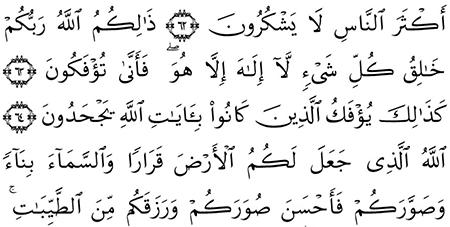 أَكْثَرَ ٱلنَّاسِ لَا يَشْكُرُونَ ٦٢ ذَٰلِكُمُ ٱللَّهُ رَبُّكُمْ
خَٰلِقُ كُلِّ شَىْءٍ لَّآ إِلَٰهَ إِلَّا هُوَ ۖ فَأَنَّىٰ تُؤْفَكُونَ ٦٣
كَذَٰلِكَ يُؤْفَكُ ٱلَّذِينَ كَانُوا۟ بِـَٔايَٰتِ ٱللَّهِ يَجْحَدُونَ ٦٤
ٱللَّهُ ٱلَّذِى جَعَلَ لَكُمُ ٱلْأَرْضَ قَرَارًا وَٱلسَّمَآءَ بِنَآءً
وَصَوَّرَكُمْ فَأَحْسَنَ صُوَرَكُمْ وَرَزَقَكُم مِّنَ ٱلطَّيِّبَٰتِ ۚ